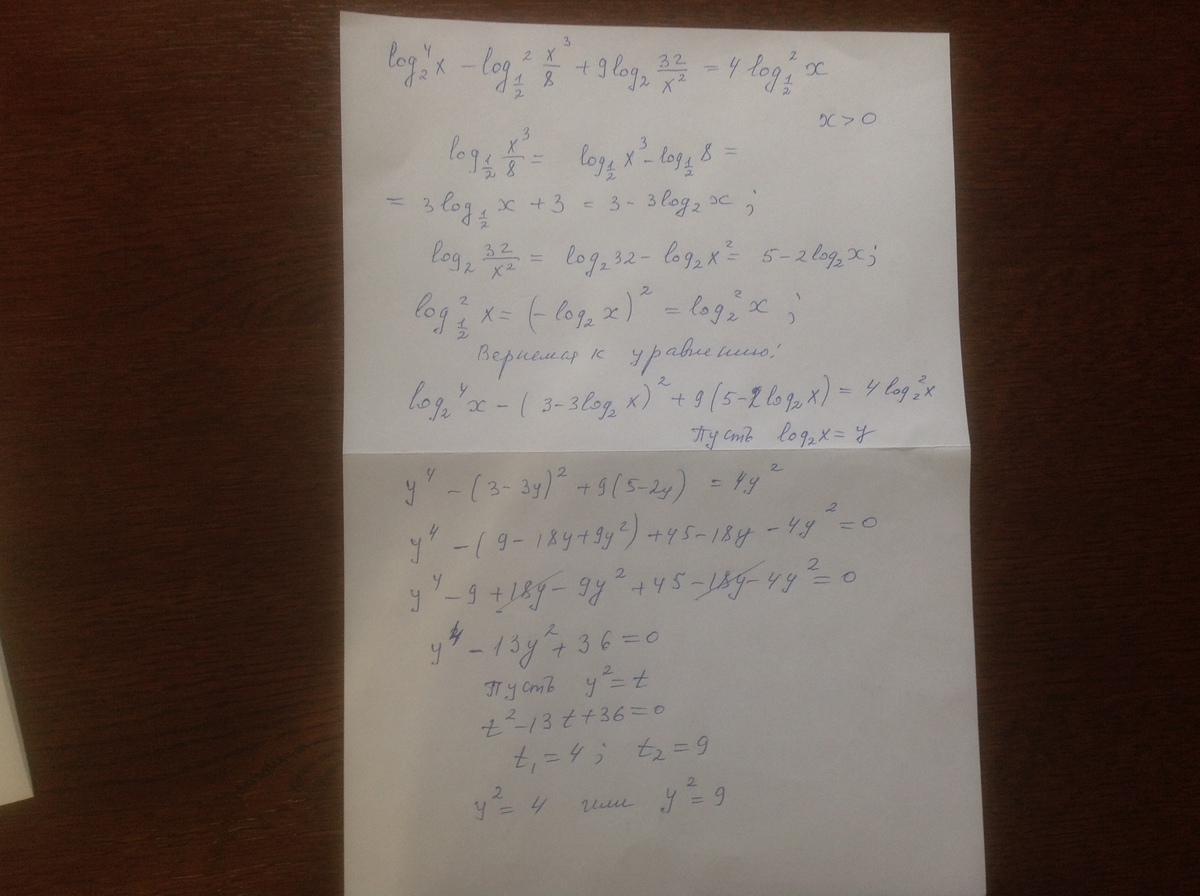 log₂⁴x − log²_{1/2} x³/8 + 9log₂ 32/x² = 4 log²_{1/2} x
x > 0
log_{1/2} x³/8 = log_{1/2} x³ − log_{1/2} 8 =
= 3log_{1/2} x + 3 = 3 − 3log₂x ;
log₂ 32/x² = log₂32 − log₂x² = 5 − 2log₂x;
log²_{1/2} x = (−log₂x)² = log₂²x ;
Вернемся к уравнению:
log₂⁴x − (3−3log₂x)² + 9(5−2log₂x) = 4log₂²x
Пусть log₂x = y
y⁴ − (3−3y)² + 9(5−2y) = 4y²
y⁴ − (9 − 18y + 9y²) + 45 − 18y − 4y² = 0
y⁴ − 9 + 18y − 9y² + 45 − 18y − 4y² = 0
y⁴ − 13y² + 36 = 0
Пусть y² = t
t² − 13t + 36 = 0
t₁ = 4 ; t₂ = 9
y² = 4 или y² = 9